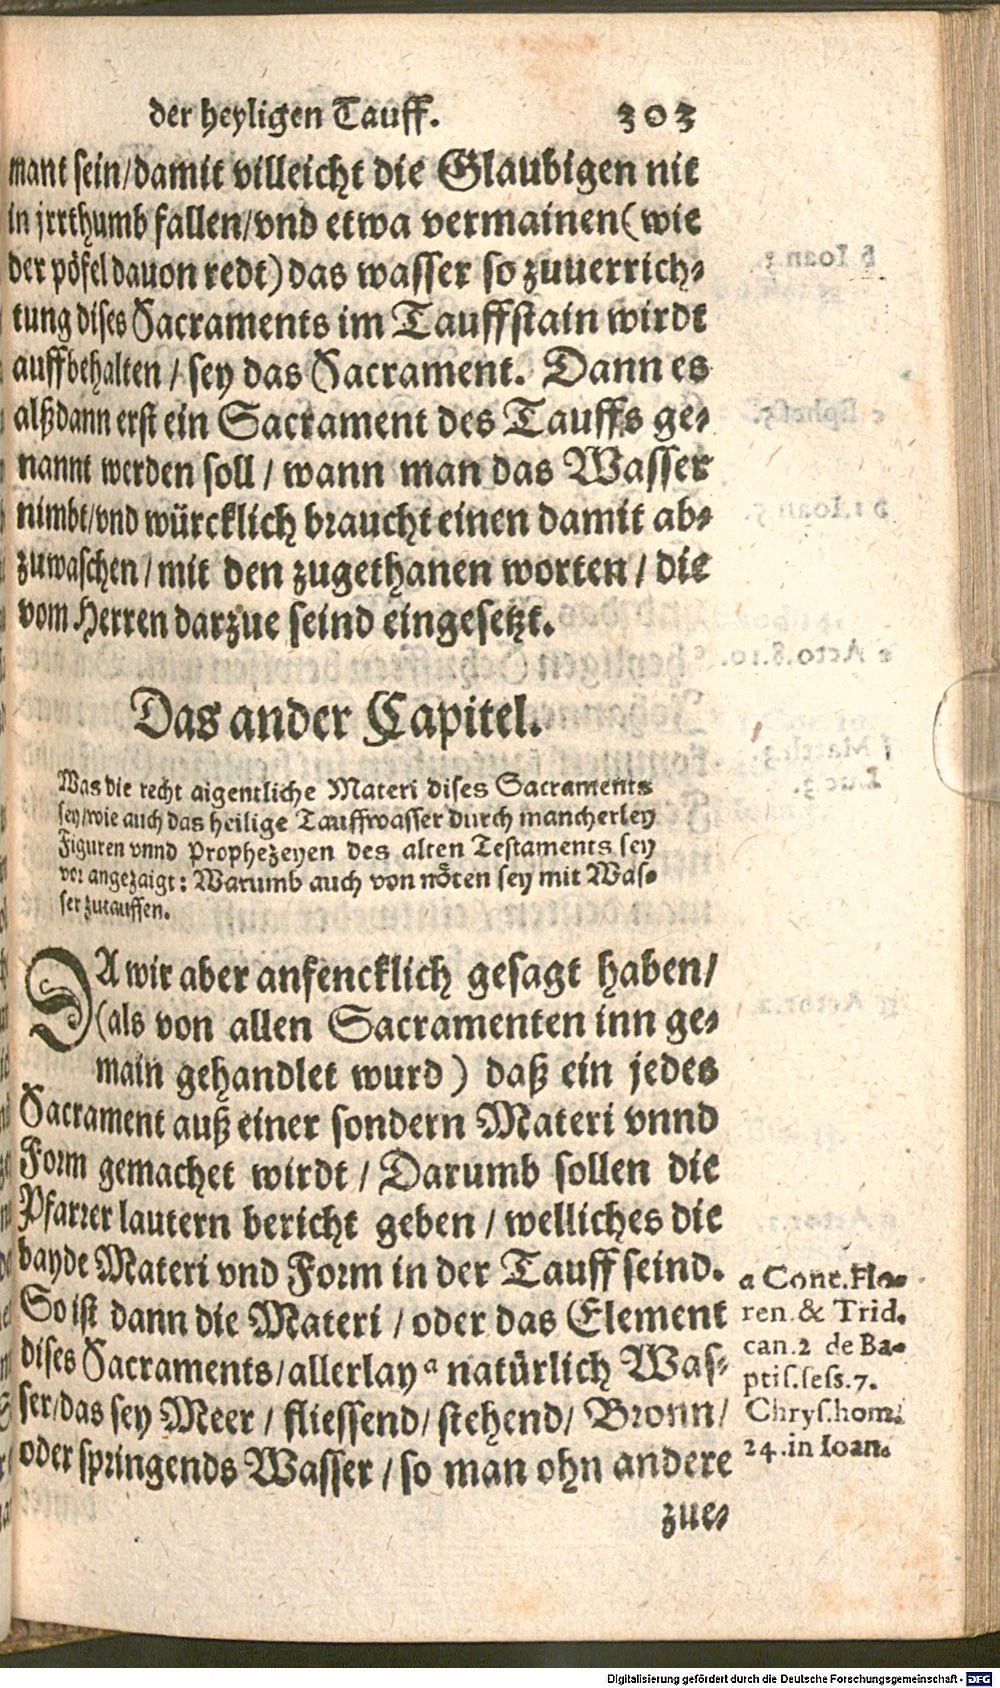 der heyligen Tauff. 303
mant sein/damit villeicht die Glaubigen nit
in jrrthumb fallen/vnd etwa vermainen(wie
der pöfel dauon redt)das wasser so zuuerrich⸗
tung dises Sacraments im Tauffstain wirdt
auffbehalten / sey das Sacrament. Dann es
alßdann erst ein Sacrament des Tauffs ge⸗
nannt werden soll / wann man das Wasser
nimbt/vnd würcklich braucht einen damit ab⸗
zuwaschen / mit den zugethanen worten / die
vom Herren darzue seind eingesetzt.
Das ander Capitel.
Was die recht aigentliche Materi dises Sacraments
sey/wie auch das heilige Tauffwasser durch mancherley
Figuren vnnd Prophezeyen des alten Testaments sey
vor angezaigt: Warumb auch von nöten sey mit Was⸗
ser zutauffen.
DA wir aber anfencklich gesagt haben/
(als von allen Sacramenten inn ge⸗
main gehandlet wurd) daß ein jedes
Sacrament auß einer sondern Materi vnnd
Form gemachet wirdt / Darumb sollen die
Pfarrer lautern bericht geben / welliches die
bayde Materi vnd Form in der Tauff seind.
So ist dann die Materi / oder das Element
dises Sacraments/allerlay a natürlich Was⸗
ser/das sey Meer / fliessend/ stehend/ Bronn/
oder springends Wasser / so man ohn andere
zue⸗
a Conc.Flo⸗
ren.& Trid.
can.2 de Ba⸗
ptis.sess.7.
Chrys.hom.
24.in Ioan.
Digitalisierung gefördert durch die Deutsche Forschungsgemeinschaft - DFG